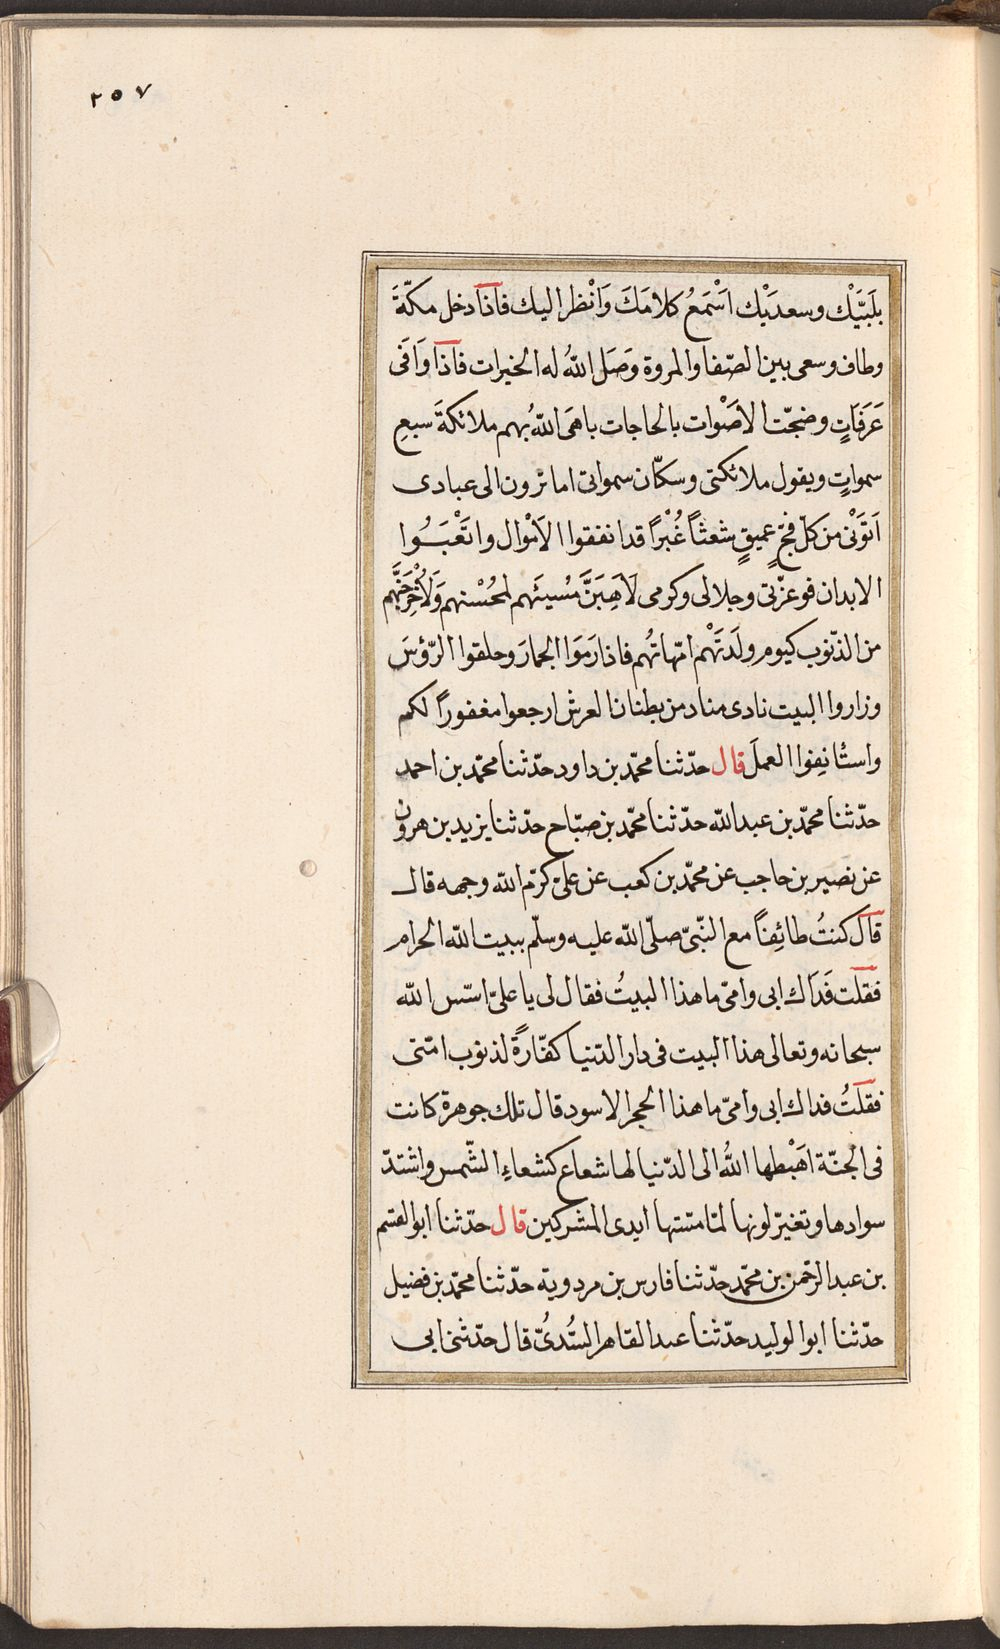 ٢٥٧
بلَبَّيْك وسعدَيْك اَسْمَعُ كلامَكَ وَاَنْظر اليك فاذا دخل مكّةَ
وطاف وسعى بين الصّفا والمروة وَصَل اللّهُ له الخيرات فاذا وَافَى
عَرَفَاتٍ وضجّت الاَصْوات بالحاجات باهَى اللّهُ بهم ملائكةَ سبعِ
سمواتٍ ويقول ملائكتى وسكّان سمواتى اما ترون الى عبادى
اَتَوْنى من كلّ فجّ عميقٍ شعثاً غُبْراً قد انفقوا الاَمْوال واتعَْبُوا
الابدان فوعزّتى وجلالى وكرمى لَاَهِبَنَّ مُسيئَهم لمُحْسنهم وَلَاُخْرِجَنَّهم
من الذّنوب كيوم ولَدَتَهْم امّهاتُهم فاذا رَمَوا الجمارَ وحلقوا الرّؤسَ
وزاروا البيت نادى مناد من بطنان العرش ارجعوا مغفوراً لكم
واستأنِفوا العملَ قال حدّثنا محمّد بن داود حدّثنا محمّد بن احمد
حدّثنا محمّد بن عبد اللّه حدّثنا محمّد بن صبّاح حدّثنا يزيد بن هرون
عن نصير بن حاجب عن محمّد بن كعب عن علىّ كرّم اللّه وجهه قال
قال كنتُ طائِفاً مع النّبىّ صلّى اللّه عليه وسلّم ببيت اللّه الحرام
فقلت فَدَاك ابى وامّى ما هذا البيتُ فقال لى يا علىّ اسّس اللّه
سبحانه وتعالى هذا البيت فى دار الدّنيا كفّارةً لذنوب امّتى
فقلتُ فداك ابى وامّى ما هذا الحجر الاسود قال تلك جوهرة كانت
فى الجنّة اهَْبطها اللّهُ الى الدّنيا لها شعاع كشعاعِ الشّمس واشتدّ
سوادها وتغيّر لونها لمّا مسّتها ايدى المشركين قال حدّثنا ابو القسم
بن عبد الرّحمن بن محمّد حدّثنا فارس بن مردوية حدّثنا محمّد بن فضيل
حدّثنا ابو الوليد حدّثنا عبد القاهر السُّدىُّ قال حدّثنى ابى